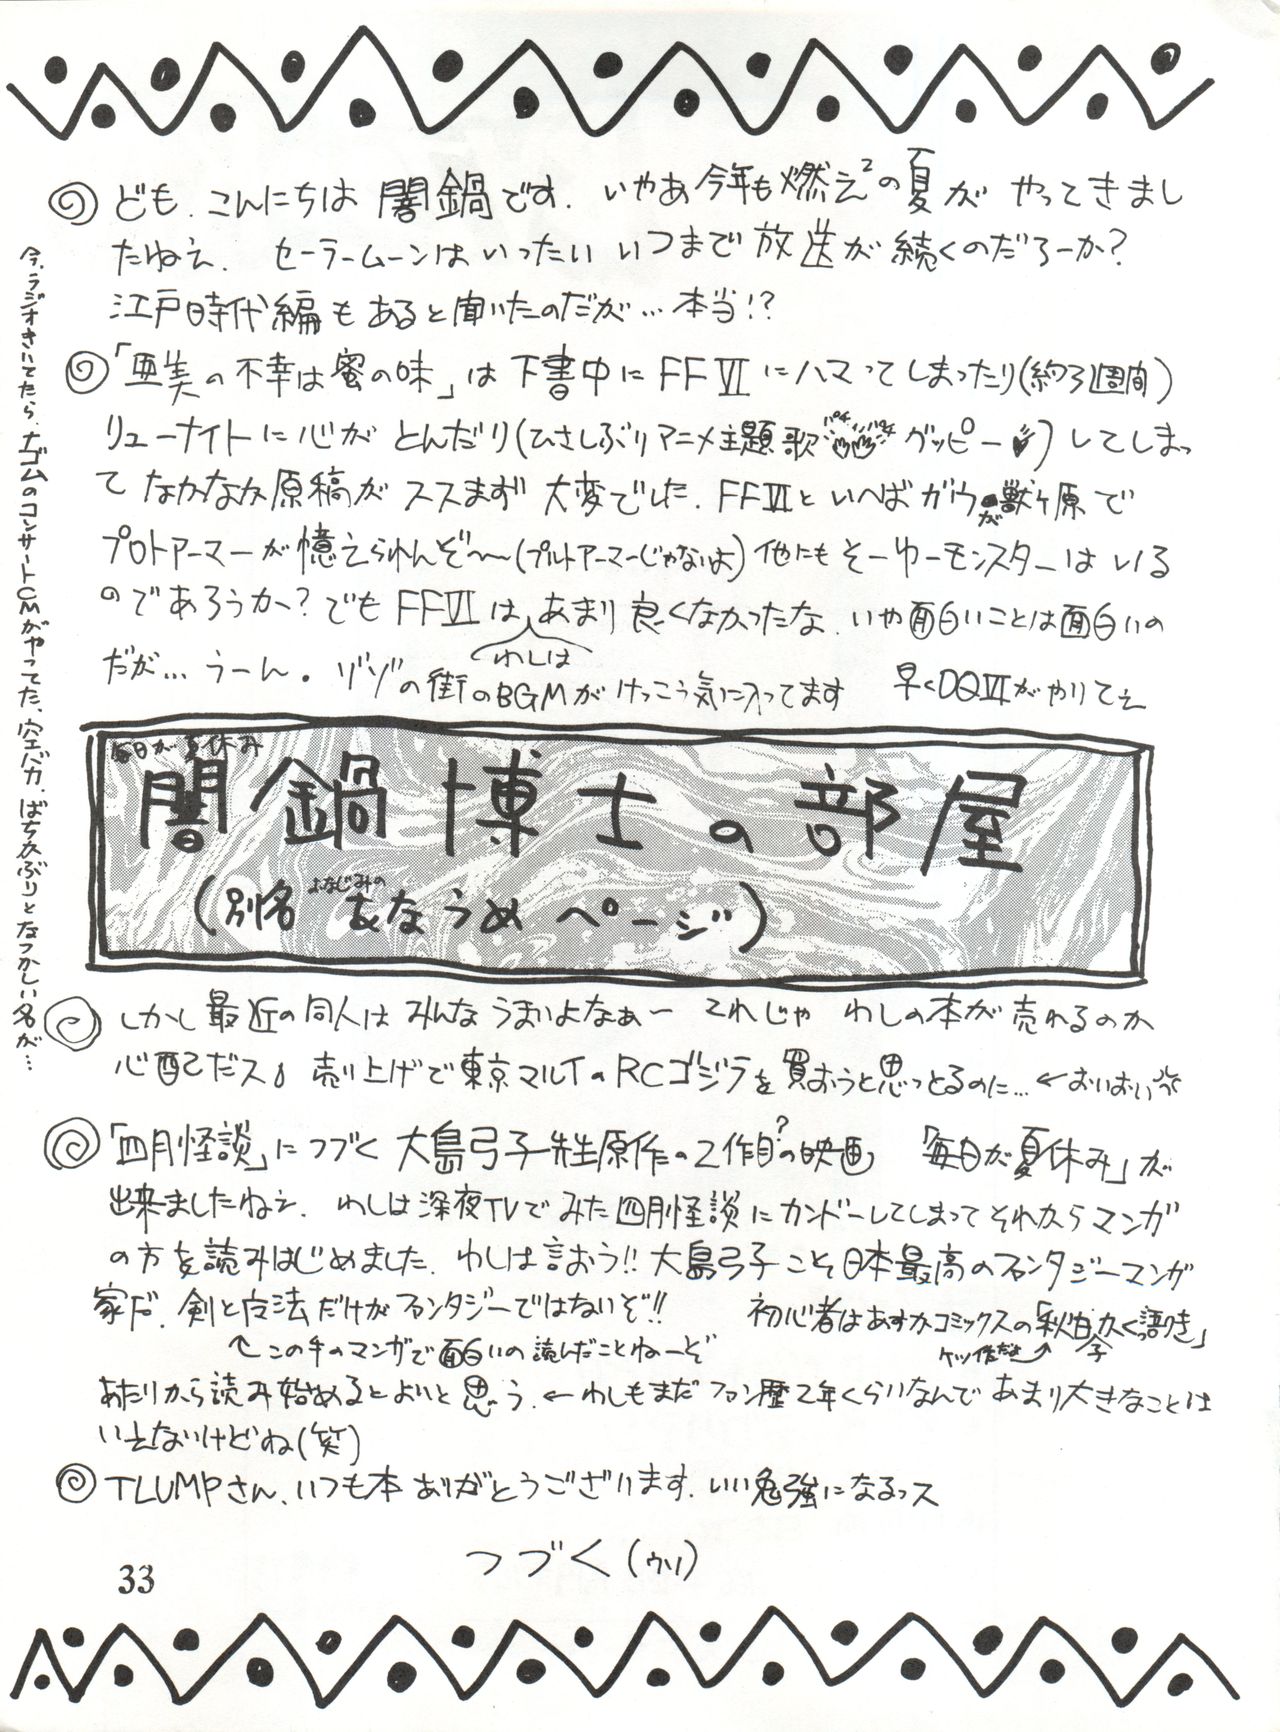 ども、こんにちは 闇鍋です. いやあ今年も燃え²の夏が やってきまし
たねえ. セーラームーンはいったい いつまで 放送が 続くのだろーか?
江戸時代編も あると聞いたのだが… 本当!?
「亜美の不幸は蜜の味」は 下書中に FFⅥ にハマってしまったり(約3週間)
リューナイトに心が とんだり(ひさしぶりアニメ主題歌 パチパチ グッピー) してしまっ
て なかなか原稿が ススまず 大変でした. FFⅥ といへば ガウが獣ヶ原で
プロトアーマーが憶えられんぞ〜(プルトアーマーじゃないよ) 他にも そーゆーモンスターは いる
のであろうか? でも FFⅥ は、あまり 良くなかったな. いや面白いことは面白いの
わしは
だが… うーん. ゾゾの街のBGMがけっこう気に入ってます 早くDQⅥがやりてえ
今、ラジオきいてたら、ナゴムのコンサートCMがやってた、空バカ、ばちかぶりとなつかしい名が…
毎日が夏休み
闇鍋博士の部屋
(別名 おなじみの あなうめ ページ)
しかし 最近の同人は みんな うまいよなぁー これじゃ わしの本が 売れるのか
心配だス 売り上げで東京マルイのRCゴジラを買おうと思っとるのに… ←おいおい
「四月怪談」につづく 大島弓子先生原作の2作目?の映画 「毎日が夏休み」が
出来ましたねえ. わしは深夜TVで みた四月怪談に カンドーしてしまって それから マンガ
の方を読みはじめました. わしは言おう!! 大島弓子こそ 日本最高のファンタジーマンガ
家だ. 剣と魔法だけがファンタジーではないぞ!! 初心者はあすかコミックスの「秋日子かく語りき」
↑この手のマンガで面白いの読んだことねーぞ ケッ作だよ↑
あたりから読み始めるとよいと思う. ←わしもまだ ファン歴2年くらいなんで あまり大きなことは
いえないけどね(笑)
TLUMPさん、いつも本 ありがとうございます. いい勉強になるっス
つづく(ウソ)
33